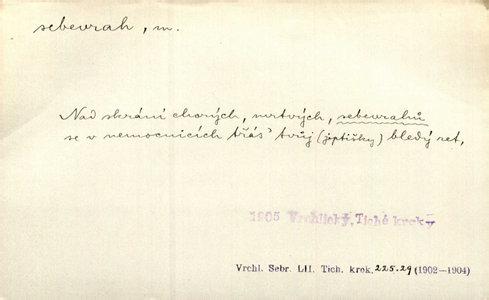 sebevrah, m.
Nad skrání chorých, mrtvých, sebevrahů
se v nemocnicích třás' tvůj (jeptišky) bledý ret,
1905 Vrchlický, Tiché kroky
Vrchl. Sebr. LII. Tich. krok. 225.29 (1902—1904)